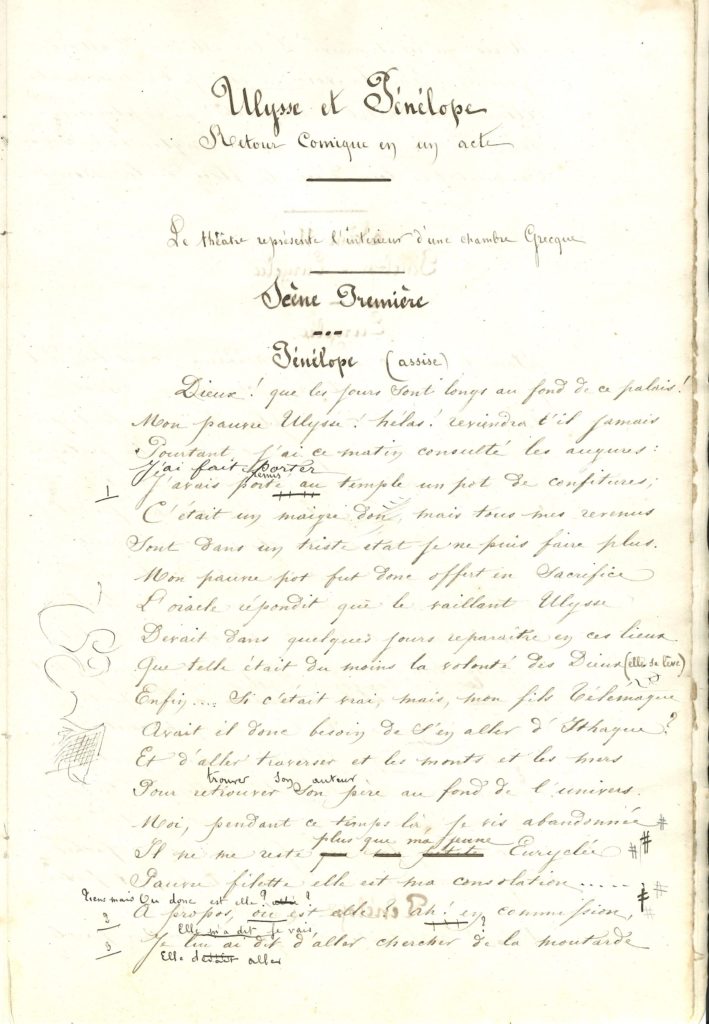 Ulysse et Pénélope
Retour Comique en un acte
Le théâtre représente l'intérieur d'une chambre Grecque
Scène Première
Pénélope (assise)
Dieux ! que les jours sont longs au fond de ce palais !
Mon pauvre Ulysse ! hélas ! reviendra t'il jamais
Pourtant j'ai ce matin consulté les augures :
J'ai fait porter
remis
1 J'avais porté au temple un pot de confitures ;
C'était un maigre don, mais tous mes revenus
Sont dans un triste état je ne puis faire plus.
Mon pauvre pot fut donc offert en Sacrifice
L'oracle répondit que le vaillant Ulysse
Devait dans quelques jours reparaître en ces lieux
Que telle était du moins la volonté des Dieux (elle se lève)
Enfin.... Si c'était vrai, mais, mon fils Télémaque
Avait il donc besoin de s'en aller d'Ithaque ?
Et d'aller traverser et les monts et les mers
trouver son auteur
Pour retrouver Son père au fond de l'univers.
Moi, pendant ce temps là, je vis abandonnée #
plus que ma jeune
Il ne me reste Euryclée # #
Pauvre filette elle est ma consolation...... # #
Tiens mais Ou donc est elle ? ?
2 A propos, ou est elle ? ah ! en commission,
Elle m'a dit je vais, ?
3 Je lui ai dit d'aller chercher de la moutarde
Elle devait aller